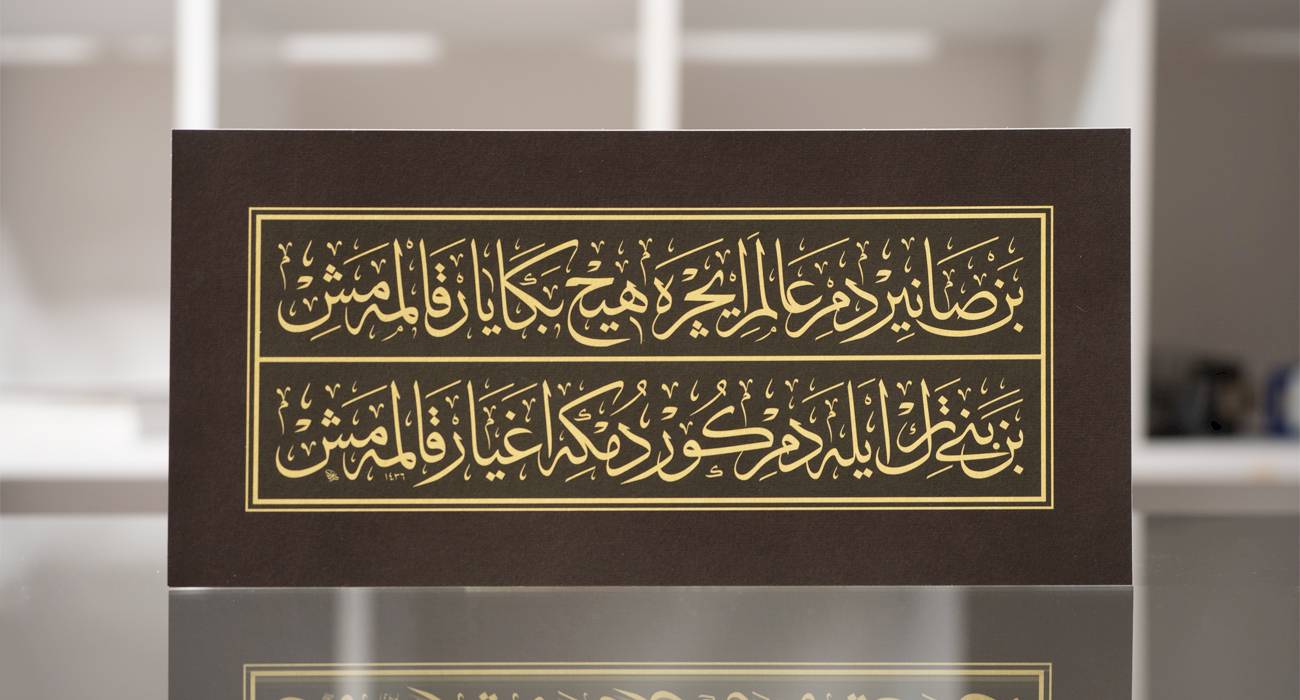 بن صانیردم عالم ایچره هیچ بكا یار قالمه مش
بن بنی ترك ایله دم كوردم كه اغیار قالمه مش
١٤٣٦